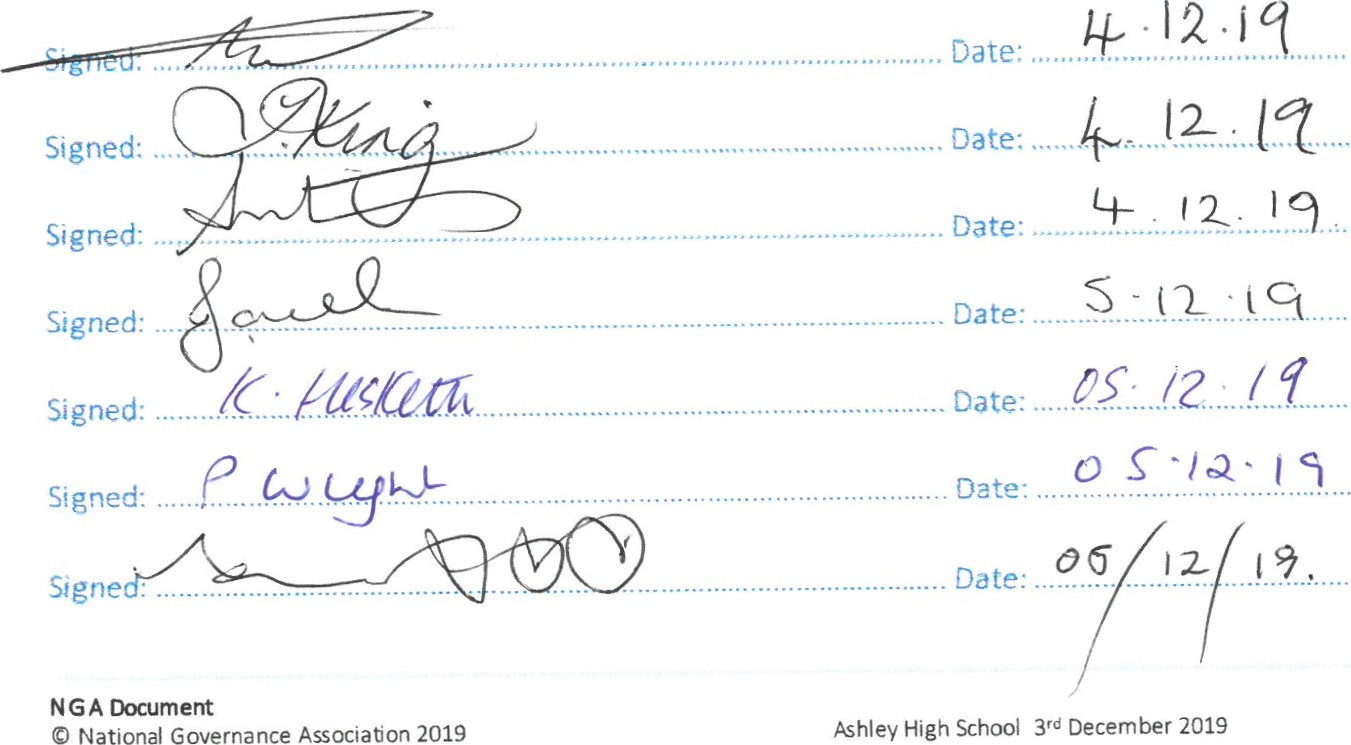 Signed: Date: 4.12.19
Signed: King Date: 4.12.19
Signed: Date: 4.12.19.
Signed: Date: 5.12.19
Signed: K. Hesketh Date: 05.12.19
Signed: P Wright Date: 05.12.19
Signed: Date: /12/19.
NGA Document
© National Governance Association 2019
Ashley High School 3rd December 2019